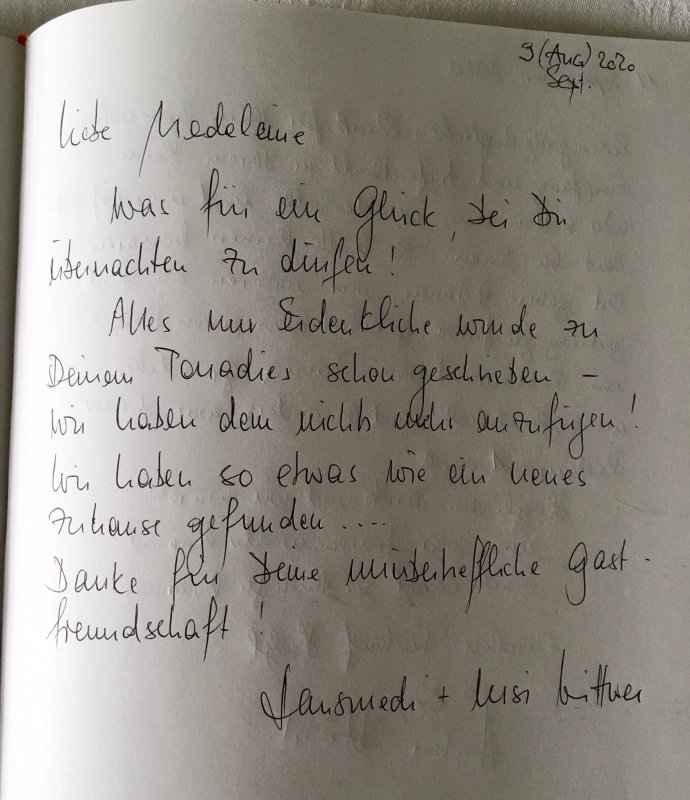 9 (Aug) 2020
Sept.
Liebe Madeleine
Was für ein Glück, bei Dir
übernachten zu dürfen!
Alles nur Erdenkliche wurde zu
Deinem Paradies schon geschrieben –
wir haben dem nichts mehr anzufügen!
Wir haben so etwas wie ein neues
Zuhause gefunden ....
Danke für Deine unübertreffliche Gast-
freundschaft!
+ Wittwer